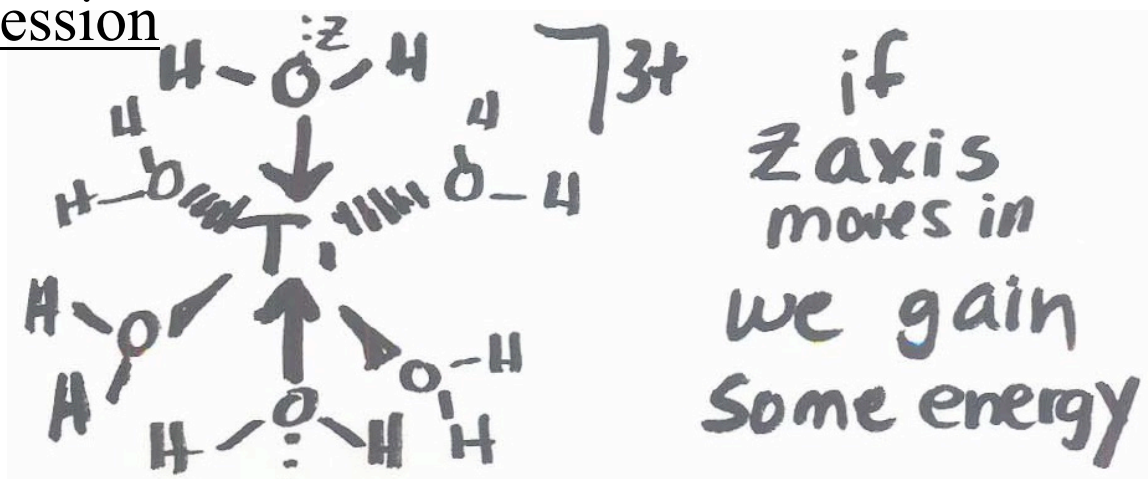 ession
:Z
H O H
]3+
H H
H O O H
Ti
H O
H
O H
H
H O H
if
z axis
moves in
we gain
some energy